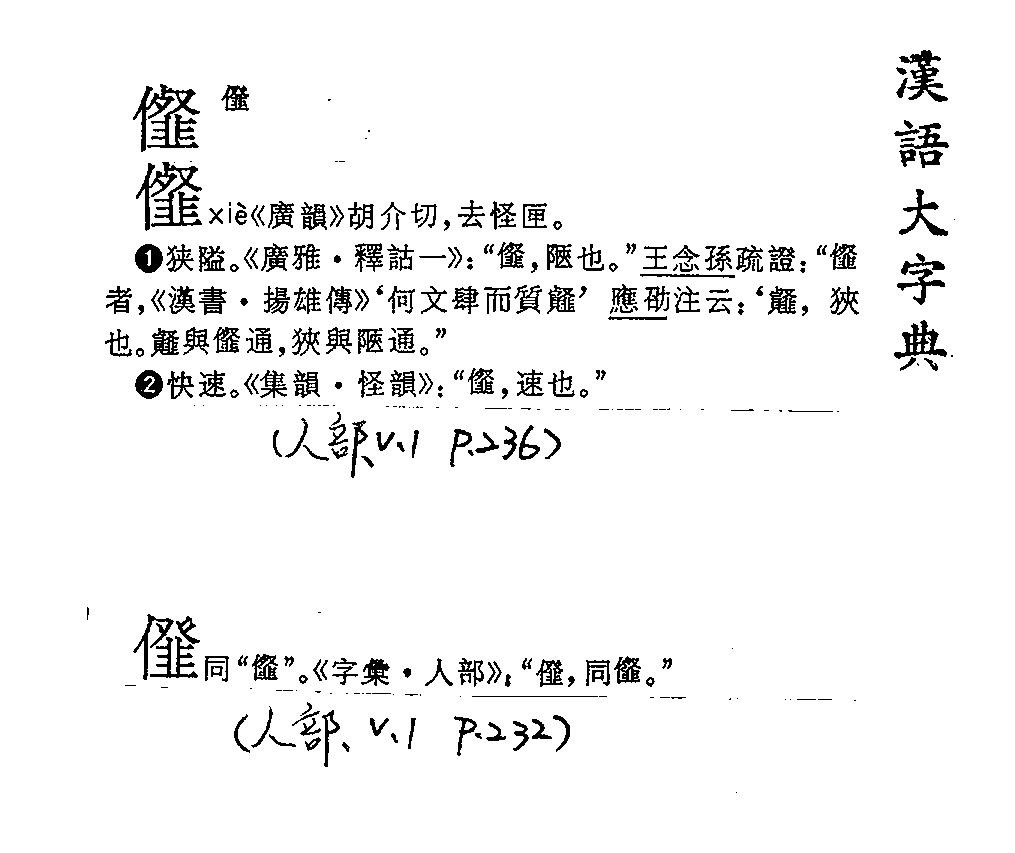 漢語大字典
㒠
㒠xiè《廣韻》胡介切，去怪匣。
❶狭隘。《廣雅·釋詁一》：“㒠，陿也。”王念孫疏證：“㒠
者，《漢書·揚雄傳》‘何文肆而質䪥’ 應劭注云：‘䪥，狹
也。䪥與㒠通，狹與陿通。”
❷快速。《集韻·怪韻》：“㒠，速也。”
(人部、v.1 P.236)
同“㒠”。《字彙·人部》：“同㒠。”
(人部、v.1 P.232)